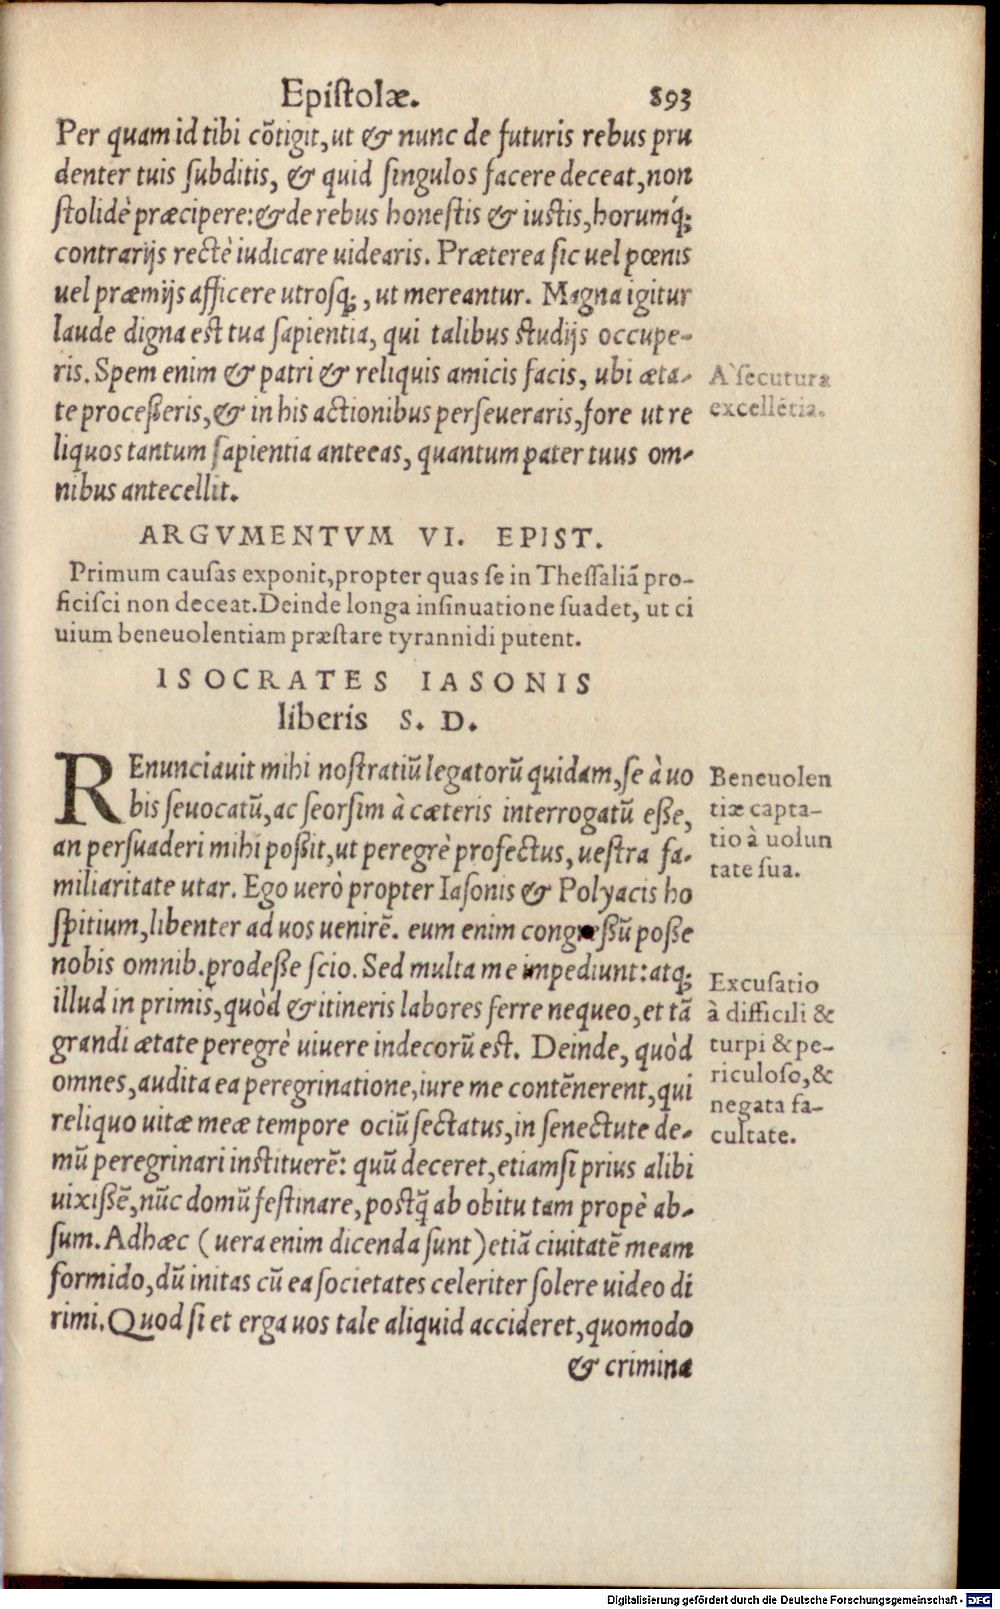 Epiſtolæ. 893
Per quam id tibi cõtigit, ut & nunc de futuris rebus pru
denter tuis ſubditis, & quid ſingulos facere deceat, non
ſtolidè præcipere: & de rebus honeſtis & iuſtis, horumq́;
contrarijs rectè iudicare uidearis. Præterea ſic uel pœnis
uel præmijs afficere utroſq;, ut mereantur. Magna igitur
laude digna est tua ſapientia, qui talibus ſtudijs occupe-
ris. Spem enim & patri & reliquis amicis facis, ubi æta-
te proceßeris, & in his actionibus perſeueraris, fore ut re
liquos tantum ſapientia anteeas, quantum pater tuus om-
nibus antecellit.
A` ſecutura
excellẽtia.
ARGVMENTVM VI. EPIST.
Primum cauſas exponit, propter quas ſe in Theſſaliã pro-
ficiſci non deceat. Deinde longa inſinuatione ſuadet, ut ci
uium beneuolentiam præſtare tyrannidi putent.
ISOCRATES IASONIS
liberis S. D.
REnunciauit mihi noſtratiũ legatorũ quidam, ſe à uo
bis ſeuocatũ, ac ſeorſim à cæteris interrogatũ eße,
an perſuaderi mihi poßit, ut peregrè profectus, ueſtra fa-
miliaritate utar. Ego uerò propter Iaſonis & Polyacis ho
ſpitium, libenter ad uos uenirẽ. eum enim congreßũ poße
nobis omnib. prodeße ſcio. Sed multa me impediunt: atq;
illud in primis, quòd & itineris labores ferre nequeo, et tã
grandi ætate peregrè uiuere indecorũ est. Deinde, quòd
omnes, audita ea peregrinatione, iure me contẽnerent, qui
reliquo uitæ meæ tempore ociũ ſectatus, in ſenectute de-
mũ peregrinari inſtituerẽ: quũ deceret, etiamſi prius alibi
uixißẽ, nũc domũ feſtinare, poſtq̃ ab obitu tam propè ab-
ſum. Adhæc (uera enim dicenda ſunt) etiã ciuitatẽ meam
formido, dũ initas cũ ea ſocietates celeriter ſolere uideo di
rimi. Quod ſi et erga uos tale aliquid accideret, quomodo
& crimina
Beneuolen
tiæ capta-
tio à uolun
tate ſua.
Excuſatio
à difficili &
turpi & pe-
riculoſo, &
negata fa-
cultate.
Digitalisierung gefördert durch die Deutsche Forschungsgemeinschaft - DFG